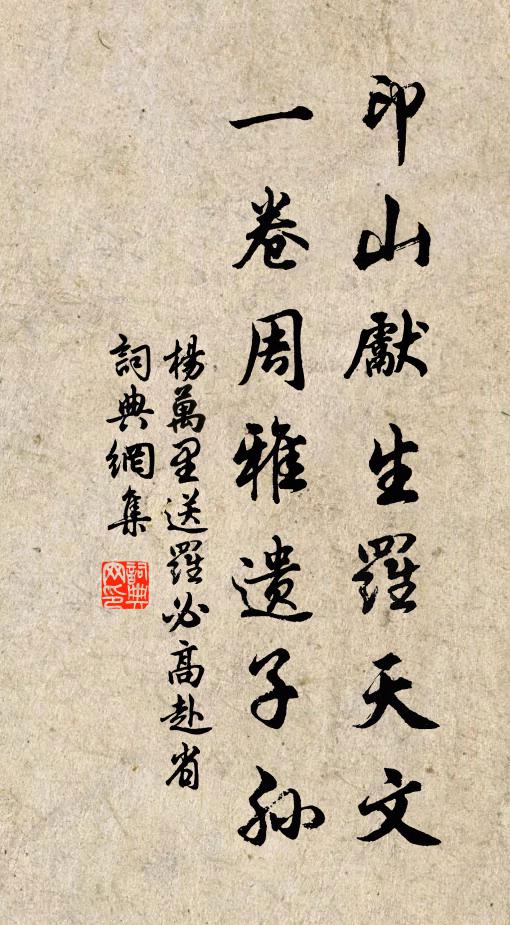 印山獻生羅天文
一卷周雅遺子孫
楊萬里送羅必高赴省
詞典網集
詞典网印